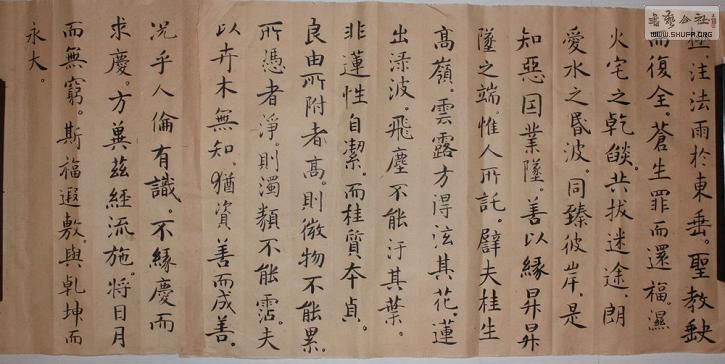 極、注法雨於東垂。聖教缺
而復全。蒼生罪而還福。濕
火宅之乾燄。共拔迷途、朗
愛水之昬波。同臻彼岸、是
知惡因業墜。善以緣昇昇
墜之端。惟人所託。譬夫桂生
高嶺。雲露方得泫其花。蓮
出渌波。飛塵不能汙其葉。
非蓮性自潔。而桂質夲貞。
良由所附者高。則微物不能累。
所憑者淨。則濁類不能霑。夫
以卉木無知、猶資善而成善。
況乎人倫有識。不緣慶而
求慶。方冀茲經流施。將日月
而無窮。斯福遐敷。與乾坤而
永大。
書藝公社
WWW.SHUFA.ORG